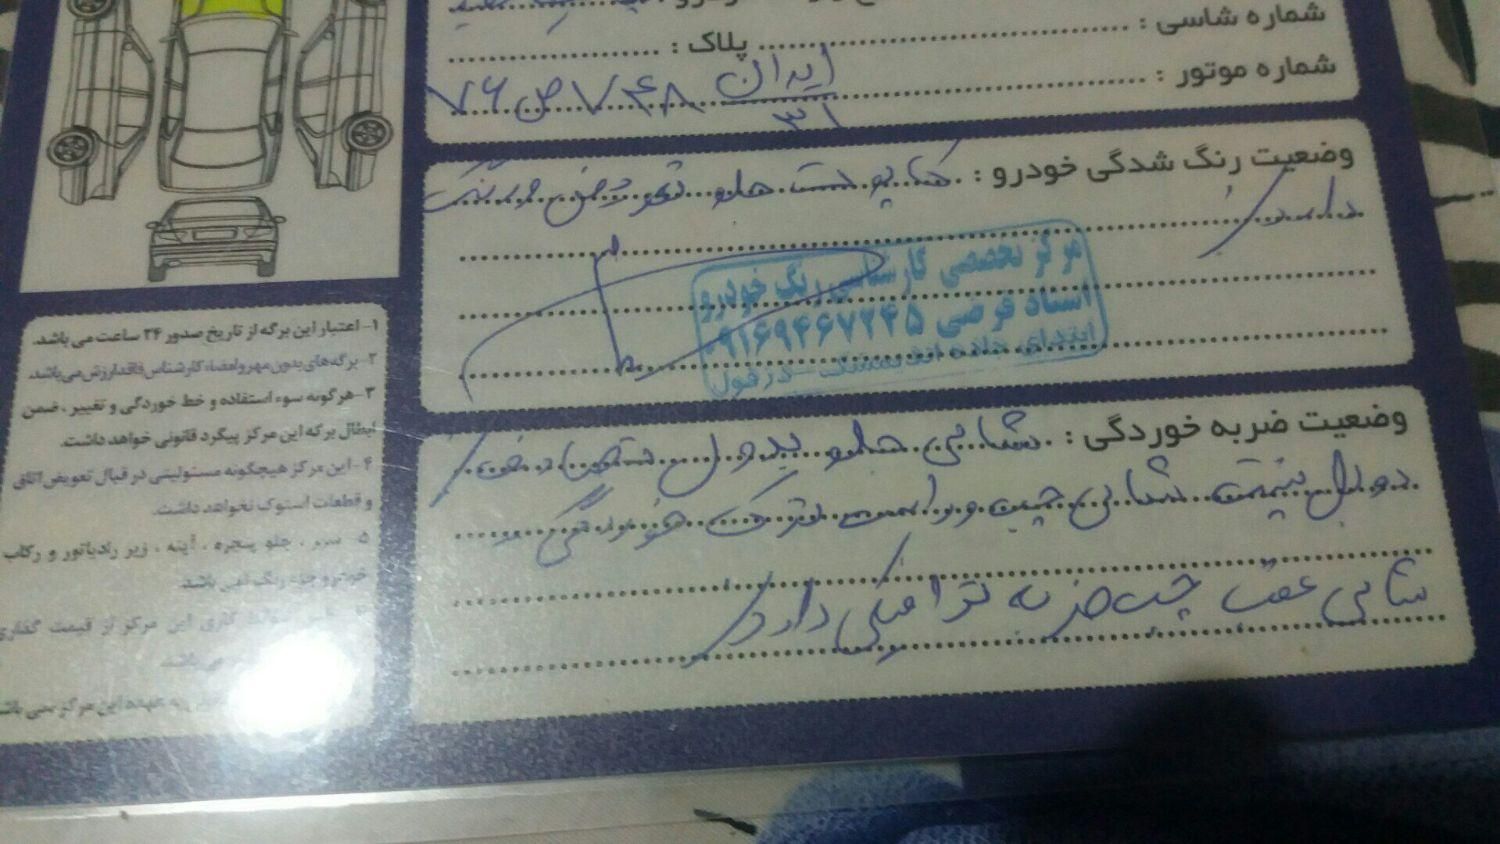 شماره شاسی : پلاک :
شماره موتور :
۷۶ ص ۷۴۸ ایران
۳۱
وضعیت رنگ شدگی خودرو : کاپوت جلو تعویض و رنگ
دارد
مرکز تخصصی کارشناسی رنگ خودرو
استاد فرضی ۰۹۱۶۹۴۶۷۲۴۵
ابتدای جاده اندیمشک - دزفول
وضعیت ضربه خوردگی : شاسی جلو بدون
شاسی چپ و راست ترک خوردگی
شاسی عقب چپ ضربه ترافیکی دارد
۱- اعتبار این برگه از تاریخ صدور ۲۴ ساعت می باشد.
۲- برگه های بدون مهر و امضاء کارشناس فاقد ارزش می باشد.
۳- هرگونه سوء استفاده و خط خوردگی و تغییر ، ضمن
ابطال برگه این مرکز پیگرد قانونی خواهد داشت.
۴- این مرکز هیچگونه مسئولیتی در قبال تعویض اتاق
و قطعات استوک نخواهد داشت.
۵- سپر ، جلو پنجره ، آینه ، زیر رادیاتور و رکاب
خودرو جزء رنگ نمی باشد.
این مرکز از قیمت گذاری
می باشد.
به عهده این مرکز نمی باشد